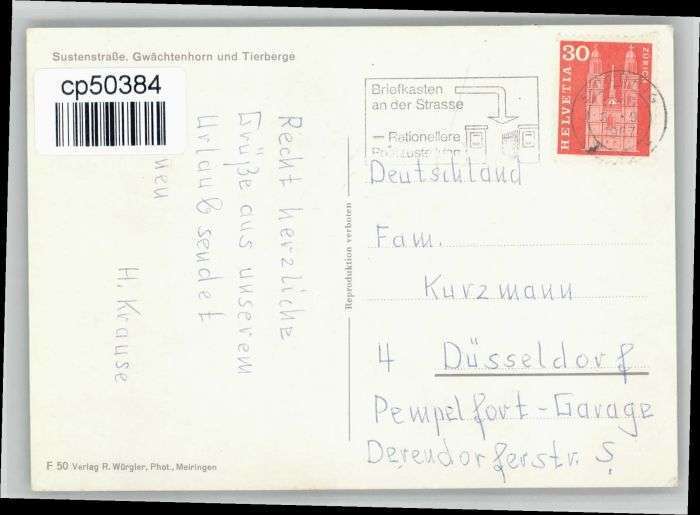 Sustenstraße, Gwächtenhorn und Tierberge
cp50384
Recht herzliche
Grüße aus unserem
Urlaub sendet
H. Krause
F 50 Verlag R. Würgler, Phot., Meiringen
Reproduktion verboten
Briefkasten
an der Strasse
— Rationellere
30
HELVETIA
ZÜRICH
Deutschland
Fam.
Kurzmann
4 Düsseldorf
Pempelfort-Garage
Derendorferstr. 5